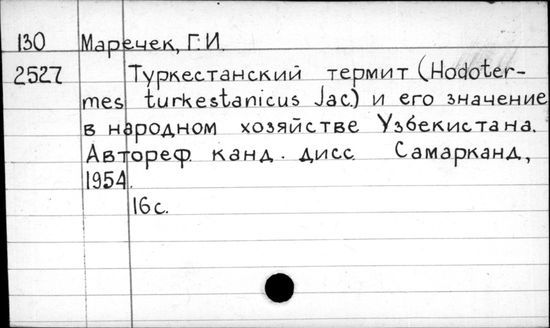 130 Маречек, Г.И.
2527 Туркестанский термит (Hodoter-
mes turkestanicus Jac.) и его значение
в народном хозяйстве Узбекистана.
Автореф. канд. дисс. Самарканд,
1954.
16с.